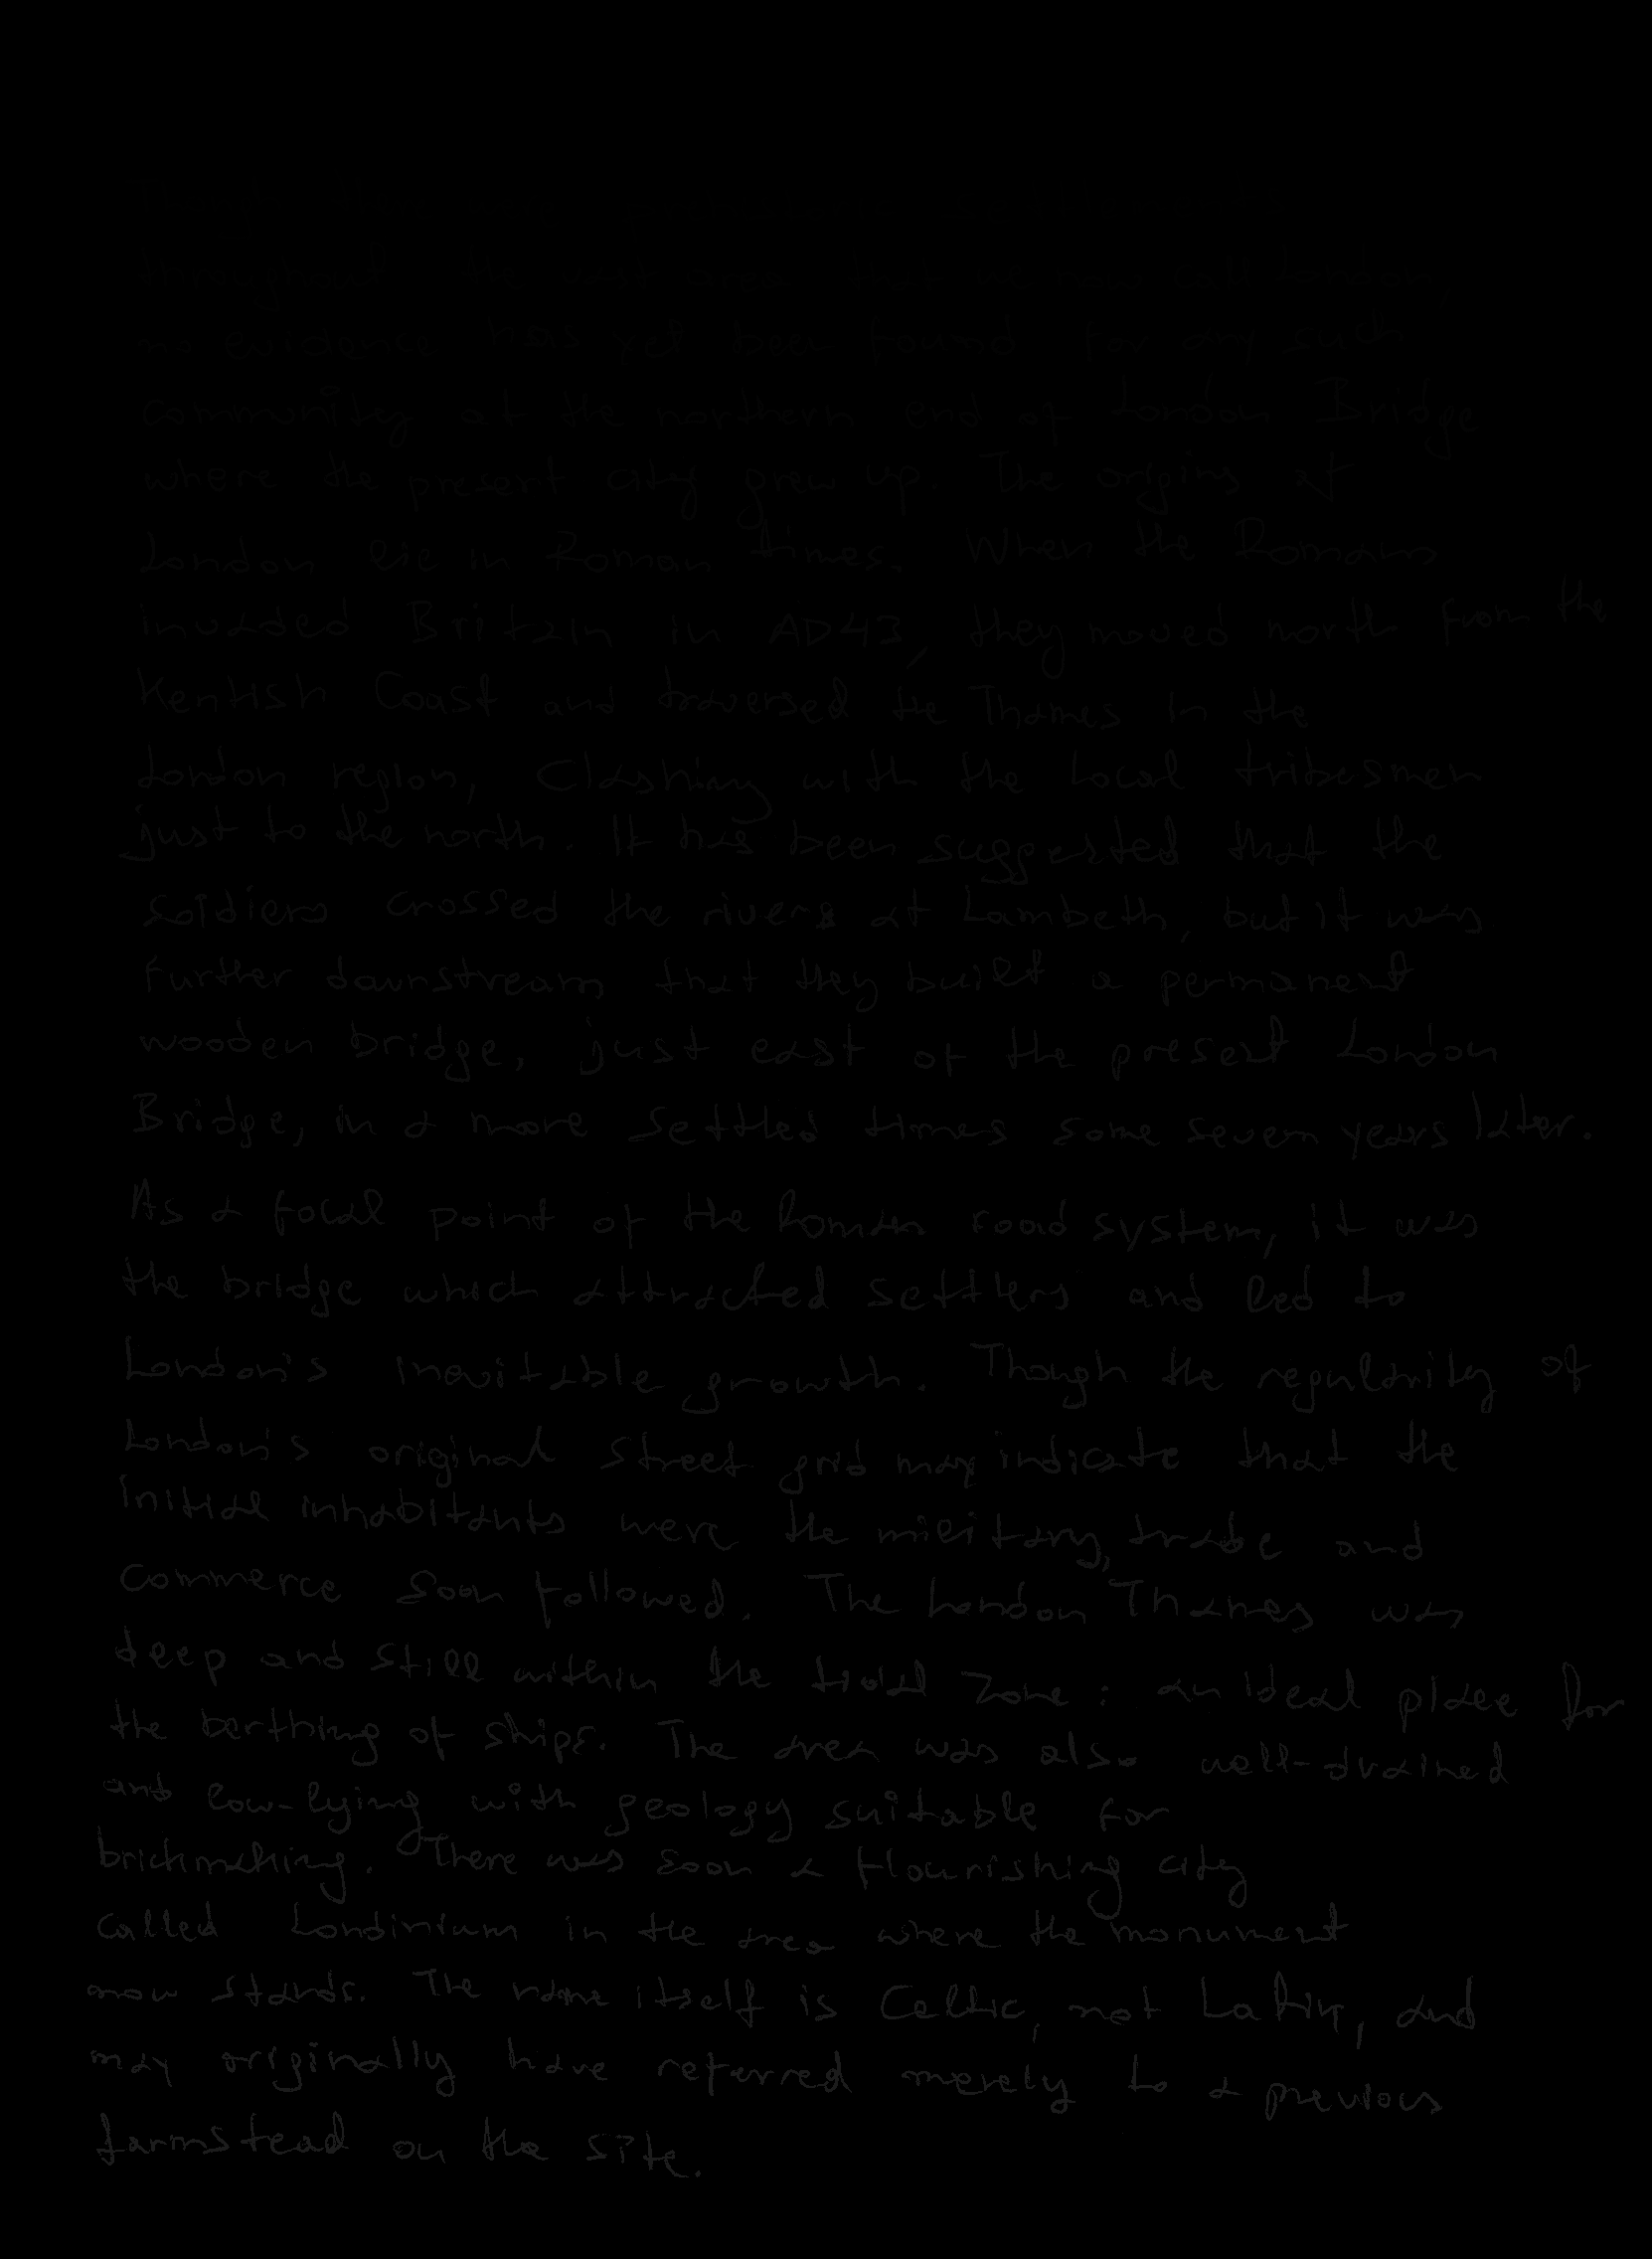 throughout the vast area that we now call London,
no evidence has yet been found for any such
community at the northern end of London Bridge
where the present city grew up. The origins of
London lie in Roman times. When the Romans
invaded Britain in AD43, they moved north from the
Kentish Coast and traversed the Thames in the
London region, Clashing with the local tribesmen
just to the north. It has been suggested that the
soldiers crossed the rivers at Lambeth, but it was
further downstream that they built a permanent
wooden bridge, just east of the present London
Bridge, in a more settled times some seven years later.
As a focal point of the Roman road system, it was
the bridge which attracted settlers and led to
London's inevitable growth. Though the regularity of
London's original street grid may indicate that the
initial inhabitants were the military, trade and
commerce soon followed. The London Thames was
deep and still within the tidal zone: an ideal place for
the berthing of ships. The area was also well-drained
and low-lying with geology suitable for
brickmaking. There was soon a flourishing city
called Londinium in the area where the monument
now stands. The name itself is Celtic, not Latin, and
may originally have referred merely to a previous
farmstead on the site.